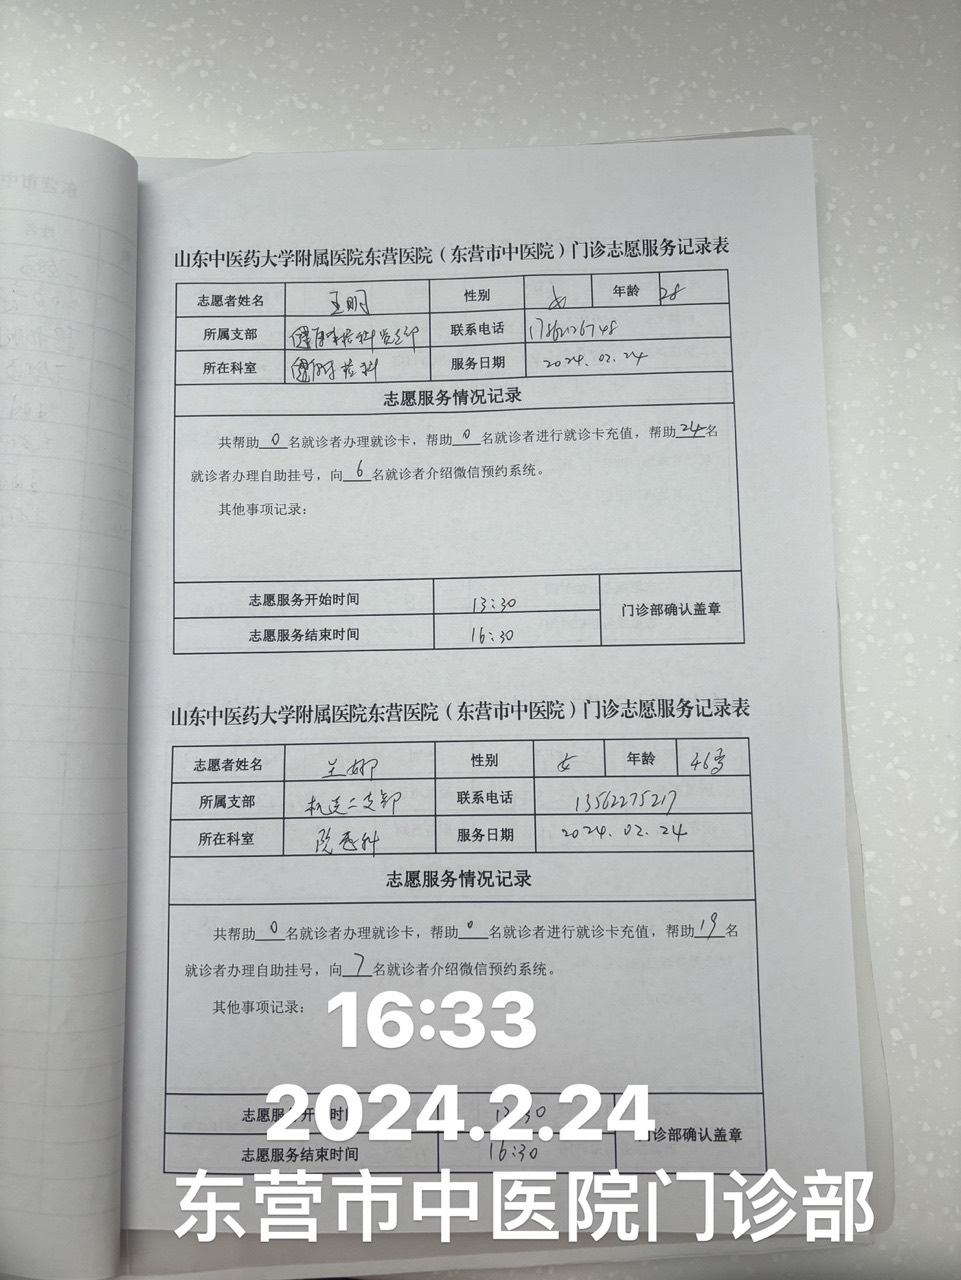 山东中医药大学附属医院东营医院（东营市中医院）门诊志愿服务记录表
志愿者姓名 王明 性别 女 年龄 28
所属支部 联系电话
所在科室 服务日期 2024.02.24
志愿服务情况记录
共帮助0名就诊者办理就诊卡，帮助0名就诊者进行就诊卡充值，帮助24名
就诊者办理自助挂号，向6名就诊者介绍微信预约系统。
其他事项记录：
志愿服务开始时间 13:30 门诊部确认盖章
志愿服务结束时间 16:30
山东中医药大学附属医院东营医院（东营市中医院）门诊志愿服务记录表
志愿者姓名 兰娜 性别 女 年龄 46岁
所属支部 机关二支部 联系电话 13562275217
所在科室 院感科 服务日期 2024.02.24
志愿服务情况记录
共帮助0名就诊者办理就诊卡，帮助0名就诊者进行就诊卡充值，帮助19名
就诊者办理自助挂号，向7名就诊者介绍微信预约系统。
其他事项记录：
16:33
志愿服务开始时间 13:30 门诊部确认盖章
2024.2.24
志愿服务结束时间 16:30
东营市中医院门诊部